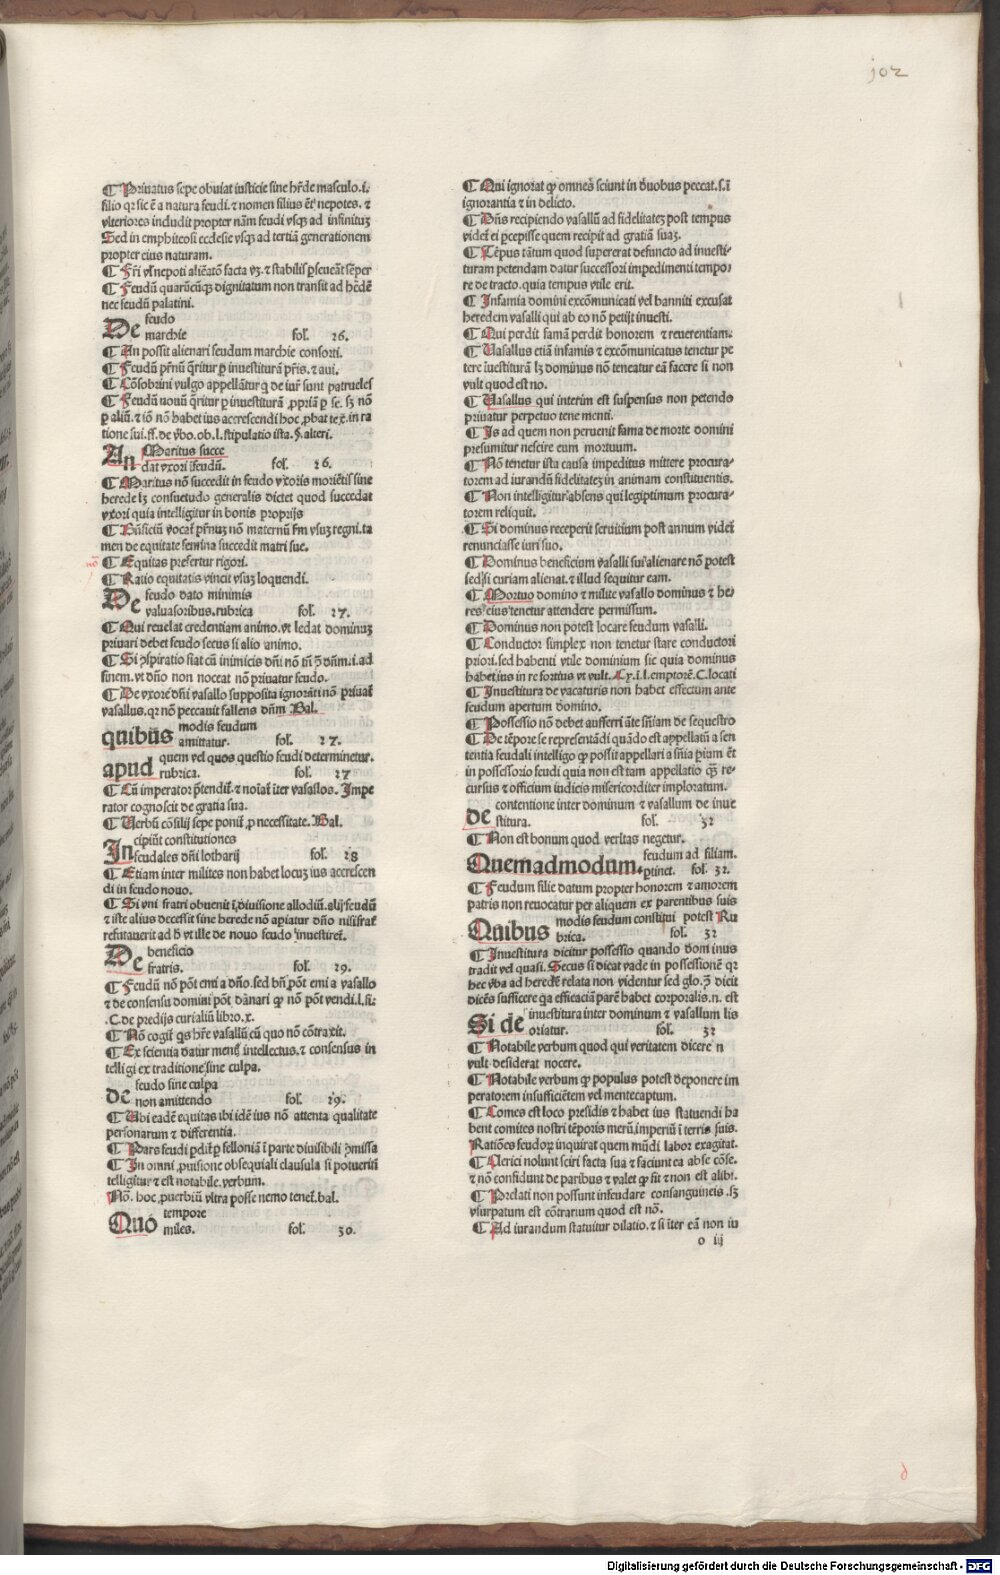 102
¶ Priuatus sepe obuiat iusticie sine hr̄de masculo.i.
filio qr sic ē a natura feudi.⁊ nomen filius ēt nepotes.⁊
vlteriores includit propter nām feudi vsqꝫ ad infinituꝫ
Sed in emphiteosi ecclesie vsqꝫ ad tertiā generationem
propter eius naturam.
¶ Fri vl nepoti aliēatō facta vꝫ.⁊ stabilis ꝑseueāt sēper
¶ Feudū quarūcūqꝫ dignitatum non transit ad hr̄dē
nec feudū palatini.
De feudo
marchie fol. 26.
¶ An possit alienari feudum marchie consorti.
¶ Feudū pr̄nū q̄ritur ꝑ inuestiturā pr̄is.⁊ aui.
¶ Cōsobrini vulgo appellātur q de iur̄ sunt patrueles
¶ Feudū nouū q̄ritur ꝑ inuestiturā ꝓpriā ꝑ se.sꝫ nō
ꝑ aliū.⁊ iō nō habet ius accrescendi hoc ꝓbat tex̄.in ra
tione sui.ff.de v̄bo.ob.l.stipulatio ista.§.alteri.
An Maritus succe
dat vxori ī feudū. fol. 26.
¶ Maritus nō succedit in feudo vxoris moriētis sine
herede lꝫ consuetudo generalis dictet quod succedat
vxori quia intelligitur in bonis proprijs
¶ Bn̄ficiū vocat̄ pr̄nuꝫ nō maternū fm vsuꝫ regni.ta
men de equitate femina succedit matri sue.
nō
¶ Equitas prefertur rigori.
¶ Ratio equitatis vincit vsuꝫ loquendi.
De feudo dato minimis
valuasoribus.rubrica fol. 27.
¶ Qui reuelat credentiam animo.vt ledat dominuꝫ
priuari debet feudo secus si alio animo.
¶ Si ꝯspiratio fiat cū inimicis dn̄i nō tn̄ ꝯ dn̄m.i.ad
finem.vt dn̄o non noceat nō priuatur feudo.
¶ De vxore dn̄i vasallo supposita ignorāti nō priuat̄
vasallus.qꝛ nō peccauit fallens dn̄m Bal.
quibus modis feudum
amittatur. fol. 27.
apud quem vel quos questio feudi determinetur.
rubrica. fol. 27
¶ Cū imperator p̄tendit̄.⁊ noīat̄ iter vasallos. Impe
rator cognoscit de gratia sua.
¶ Verbū cōsilij sepe ponit̄ ꝓ necessitate. Bal.
In cipiūt constitutiones
feudales dn̄i lotharij fol. 28
¶ Etiam inter milites non habet locuꝫ ius accrescen
di in feudo nouo.
¶ Si vni fratri obuenit ī diuisione allodiū.alij feudū
⁊ iste alius decessit sine herede nō apiatur dn̄o nisi frat̄
refutauerit ad h̄ vt ille de nouo feudo inuestiret̄.
De beneficio
fratris. fol. 29.
¶ Feudū nō pōt emi a dn̄o.sed bn̄ pōt emi a vasallo
⁊ de consensu domini pōt dānari qꝫ nō pōt vendi.l.si.
.C.de predijs curialiū libro.x.
¶ Nō cogit̄ qs hr̄e vasallū cū quo nō cōtraxit.
¶ Ex scientia datur mens intellectus.⁊ consensus in
telligi ex traditione sine culpa.
de feudo sine culpa
non amittendo fol. 29.
¶ Ubi eadē equitas ibi idē ius nō attenta qualitate
personarum ⁊ differentia.
¶ Pars feudi ꝑdit̄ ꝑ felloniā ī parte diuisibili ꝯmissa
¶ In omni ꝓuisione obsequiali clausula si potuerit
telligitur ⁊ est notabile.verbum.
Nō. hoc ꝓuerbiū vltra posse nemo tenet̄.bal.
Quo tempore
miles. fol. 30.
¶ Qui ignorat qꝫ omnes sciunt in duobus peccat.s.ī
ignorantia ⁊ in delicto.
¶ Dn̄s recipiendo vasallū ad fidelitateꝫ post tempus
videt̄ ei ꝑcepisse quem recipit ad gratiā suaꝫ.
¶ Tēpus tātum quod supererat defuncto ad inuesti-
turam petendam datur successori impedimenti tempo
re de tracto.quia tempus vtile erit.
¶ Infamia domini excōmunicati vel banniti excusat
heredem vasalli qui ab eo nō petijt inuesti.
¶ Qui perdit famā perdit honorem ⁊ reuerentiam.
¶ Vasallus etiā infamis ⁊ excōmunicatus tenetur pe
tere inuestiturā lꝫ dominus nō teneatur eā facere si non
vult quod est no.
¶ Vasallus qui interim est suspensus non petendo
priuatur perpetuo tene menti.
¶ Is ad quem non peruenit fama de morte domini
presumitur nescire eum mortuum.
¶ Nō tenetur ista causa impeditus mittere procura-
torem ad iurandū fidelitateꝫ in animam constituentis.
¶ Non intelligitur absens qui legiptimum procura-
torem reliquit.
¶ Si dominus receperit seruitium post annum videt̄
renunciasse iuri suo.
¶ Dominus beneficium vasalli sui alienare nō potest
sed si curiam alienat.⁊ illud sequitur eam.
¶ Mortuo domino ⁊ milite vasallo dominus ⁊ he-
res eius tenetur attendere permissum.
¶ Dominus non potest locare feudum vasalli.
¶ Conductor simplex non tenetur stare conductori
priori.sed habenti vtile dominium sic quia dominus
habet ius in re fortius vt vult. Cy.i.l.emptorē.C.locati
¶ Inuestitura de vacaturis non habet effectum ante
feudum apertum domino.
¶ Possessio nō debet aufferri āte sn̄iam de sequestro
¶ De tēpore se representādi quādo est appellatū a sen
tentia feudali intelligo qꝫ possit appellari a sn̄ia ꝑiam ēt
in possessorio feudi quia non est tam appellatio qꝫ re-
cursus ⁊ officium iudicis misericorditer imploratum.
de contentione inter dominum ⁊ vasallum de inue
stitura. fol. 32
¶ Non est bonum quod veritas negetur.
Quemadmodum. feudum ad filiam.
ꝑtinet. fol. 32.
¶ Feudum filie datum propter honorem ⁊ amorem
patris non reuocatur per aliquem ex parentibus suis
Quibus modis feudum constitui potest Ru
brica. fol. 32
¶ Inuestitura dicitur possessio quando dominus
tradit vel quasi. Secus si dicat vade in possessionē qꝛ
hec v̄ba ad heredē relata non videntur sed glo.ꝯ dicit
dicēs sufficere qa efficaciā parē habet corporalis.n. est
Si de inuestitura inter dominum ⁊ vasallum lis
oriatur. fol. 32
¶ Notabile verbum quod qui veritatem dicere n
vult desiderat nocere.
¶ Notabile verbum qꝫ populus potest deponere im
peratorem insufficiētem vel mentecaptum.
¶ Comes est loco presidis ⁊ habet ius statuendi ha
bent comites nostri tēporis merū imperiū ī terris suis.
Ratiōes feudoꝝ inquirat quem mūdi labor exagitat.
¶ Clerici nolunt sciri facta sua ⁊ faciunt ea abse cōse.
⁊ nō confidunt de paribus ⁊ valet qꝫ sit ⁊ non est alibi.
¶ Prelati non possunt infeudare consanguineis.sꝫ
vsurpatum est cōtrarium quod est nō.
¶ Ad iurandum statuitur dilatio.⁊ si iter eā non iu
o iij
d
Digitalisierung gefördert durch die Deutsche Forschungsgemeinschaft - DFG